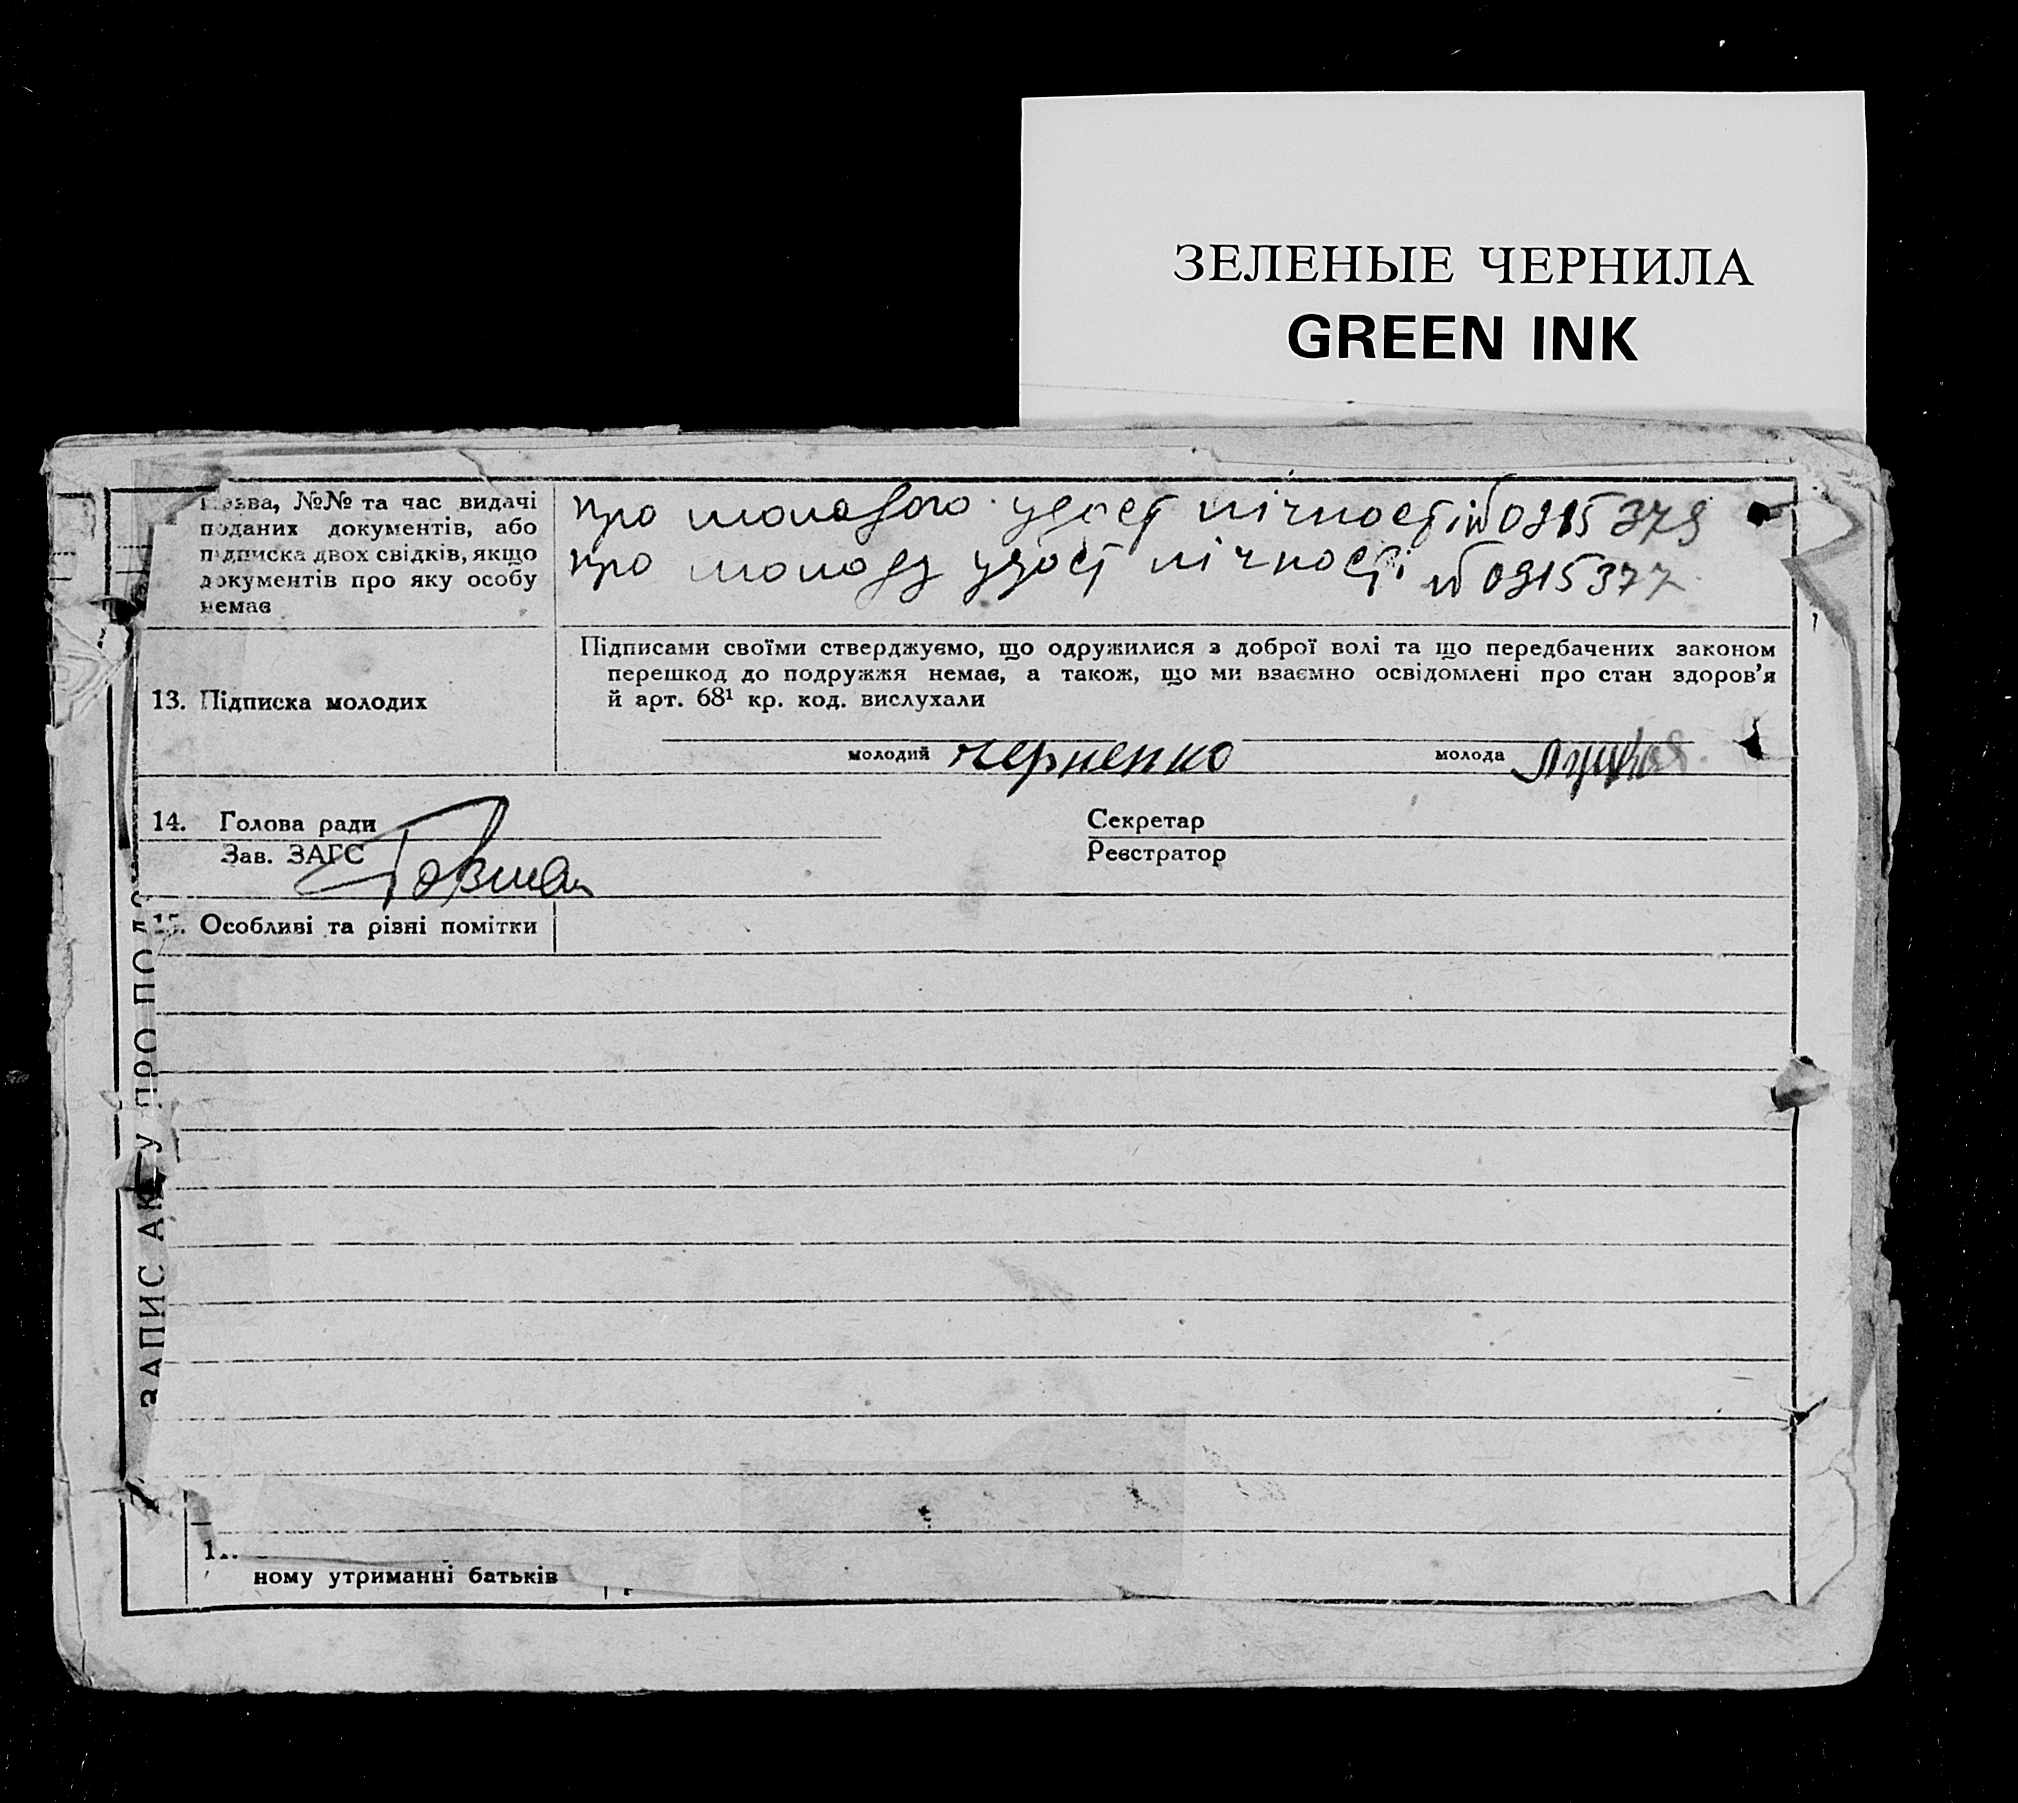 ЗЕЛЕНЫЕ ЧЕРНИЛА
GREEN INK
Назва, №№ та час видачі
поданих документів, або
підписка двох свідків, якщо
документів про яку особу
немає
про молодого удост лічності № 0915379
про молоду удост лічності № 0915377
13. Підписка молодих
Підписами своїми стверджуємо, що одружилися з доброї волі та що передбачених законом
перешкод до подружжя немає, а також, що ми взаємно освідомлені про стан здоров’я
й арт. 68¹ кр. код. вислухали
молодий Черненко
молода
14. Голова ради
Секретар
Зав. ЗАГС
Реєстратор
15. Особливі та різні помітки
ЗАПИС АКТУ ПРО ПОД
ному утриманні батьків